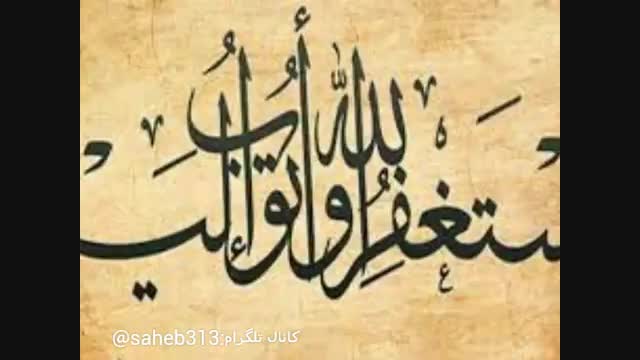 ستغفر الله وأتوب إليـ
کانال تلگرام:@saheb313